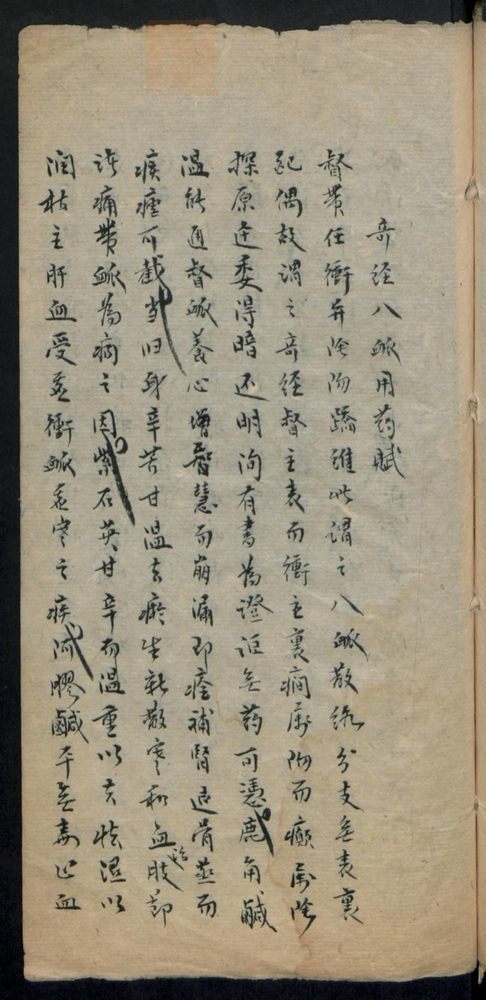 奇经八脈用药賦
督带任衝并陰阳蹻維此謂之八脈散絡分支無表裏
配偶故謂之奇经督主表而衝主裏痫属阳而癲属陰
探原達委得暗还明洵有書為證詎無药可憑鹿角鹹
温能通督脈養心增智慧而崩漏即痊補腎退骨蒸而
痎瘧可截当归身辛苦甘温去瘀生新散寒和血肢節
諸痛带脈為病之因紫石英甘辛而温重以去怯湿以
润枯主肝血受益衝脈虚寒之疾阿膠鹹平無毒止血